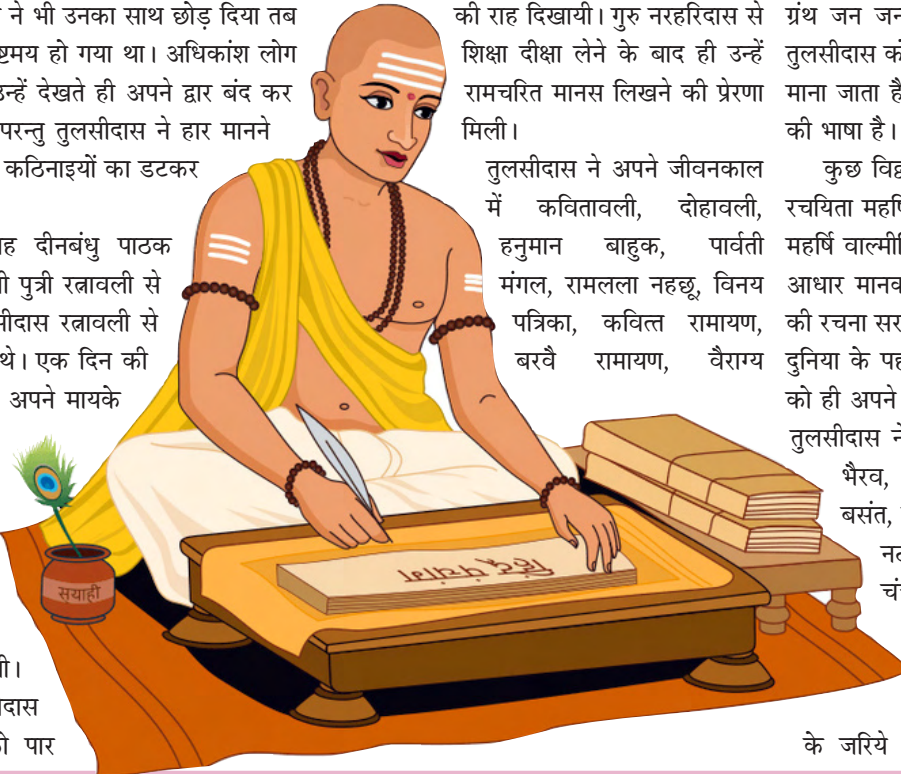 ने भी उनका साथ छोड़ दिया तब
ष्टमय हो गया था। अधिकांश लोग
उन्हें देखते ही अपने द्वार बंद कर
परन्तु तुलसीदास ने हार मानने
कठिनाइयों का डटकर
ह दीनबंधु पाठक
पुत्री रत्नावली से
सीदास रत्नावली से
थे। एक दिन की
अपने मायके
सयाही
दास
पार
की राह दिखायी। गुरु नरहरिदास से
शिक्षा दीक्षा लेने के बाद ही उन्हें
रामचरित मानस लिखने की प्रेरणा
मिली।
तुलसीदास ने अपने जीवनकाल
में कवितावली, दोहावली,
हनुमान बाहुक, पार्वती
मंगल, रामलला नहछू, विनय
पत्रिका, कवित्त रामायण,
बरवै रामायण, वैराग्य
ग्रंथ जन जन
तुलसीदास को
माना जाता है
की भाषा है।
कुछ विद्व
रचयिता महर्षि
महर्षि वाल्मीि
आधार मानक
की रचना सर
दुनिया के पह
को ही अपने
तुलसीदास ने
भैरव,
बसंत,
नट
चं
के जरिये